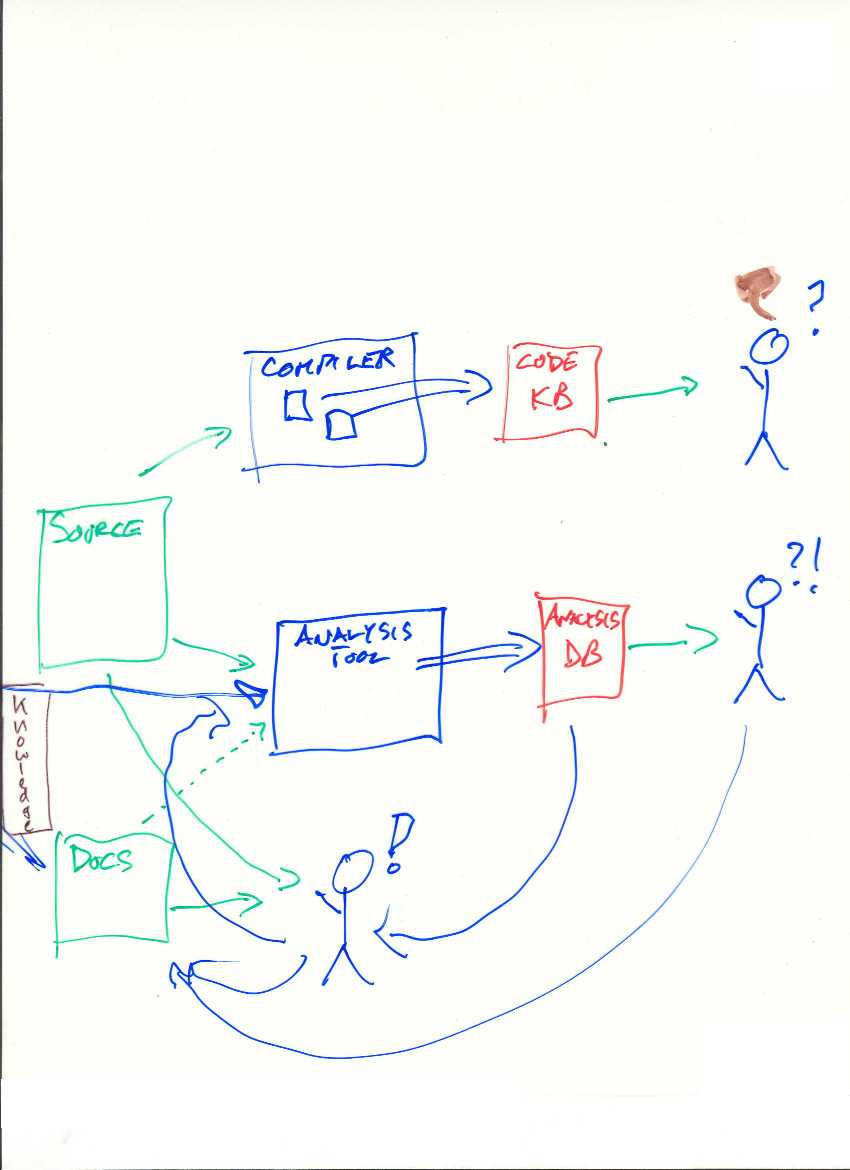 COMPILER
CODE
KB
?
SOURCE
?!
ANALYSIS
TOOL
ANALYSIS
DB
Knowledge
?
DOCS
!